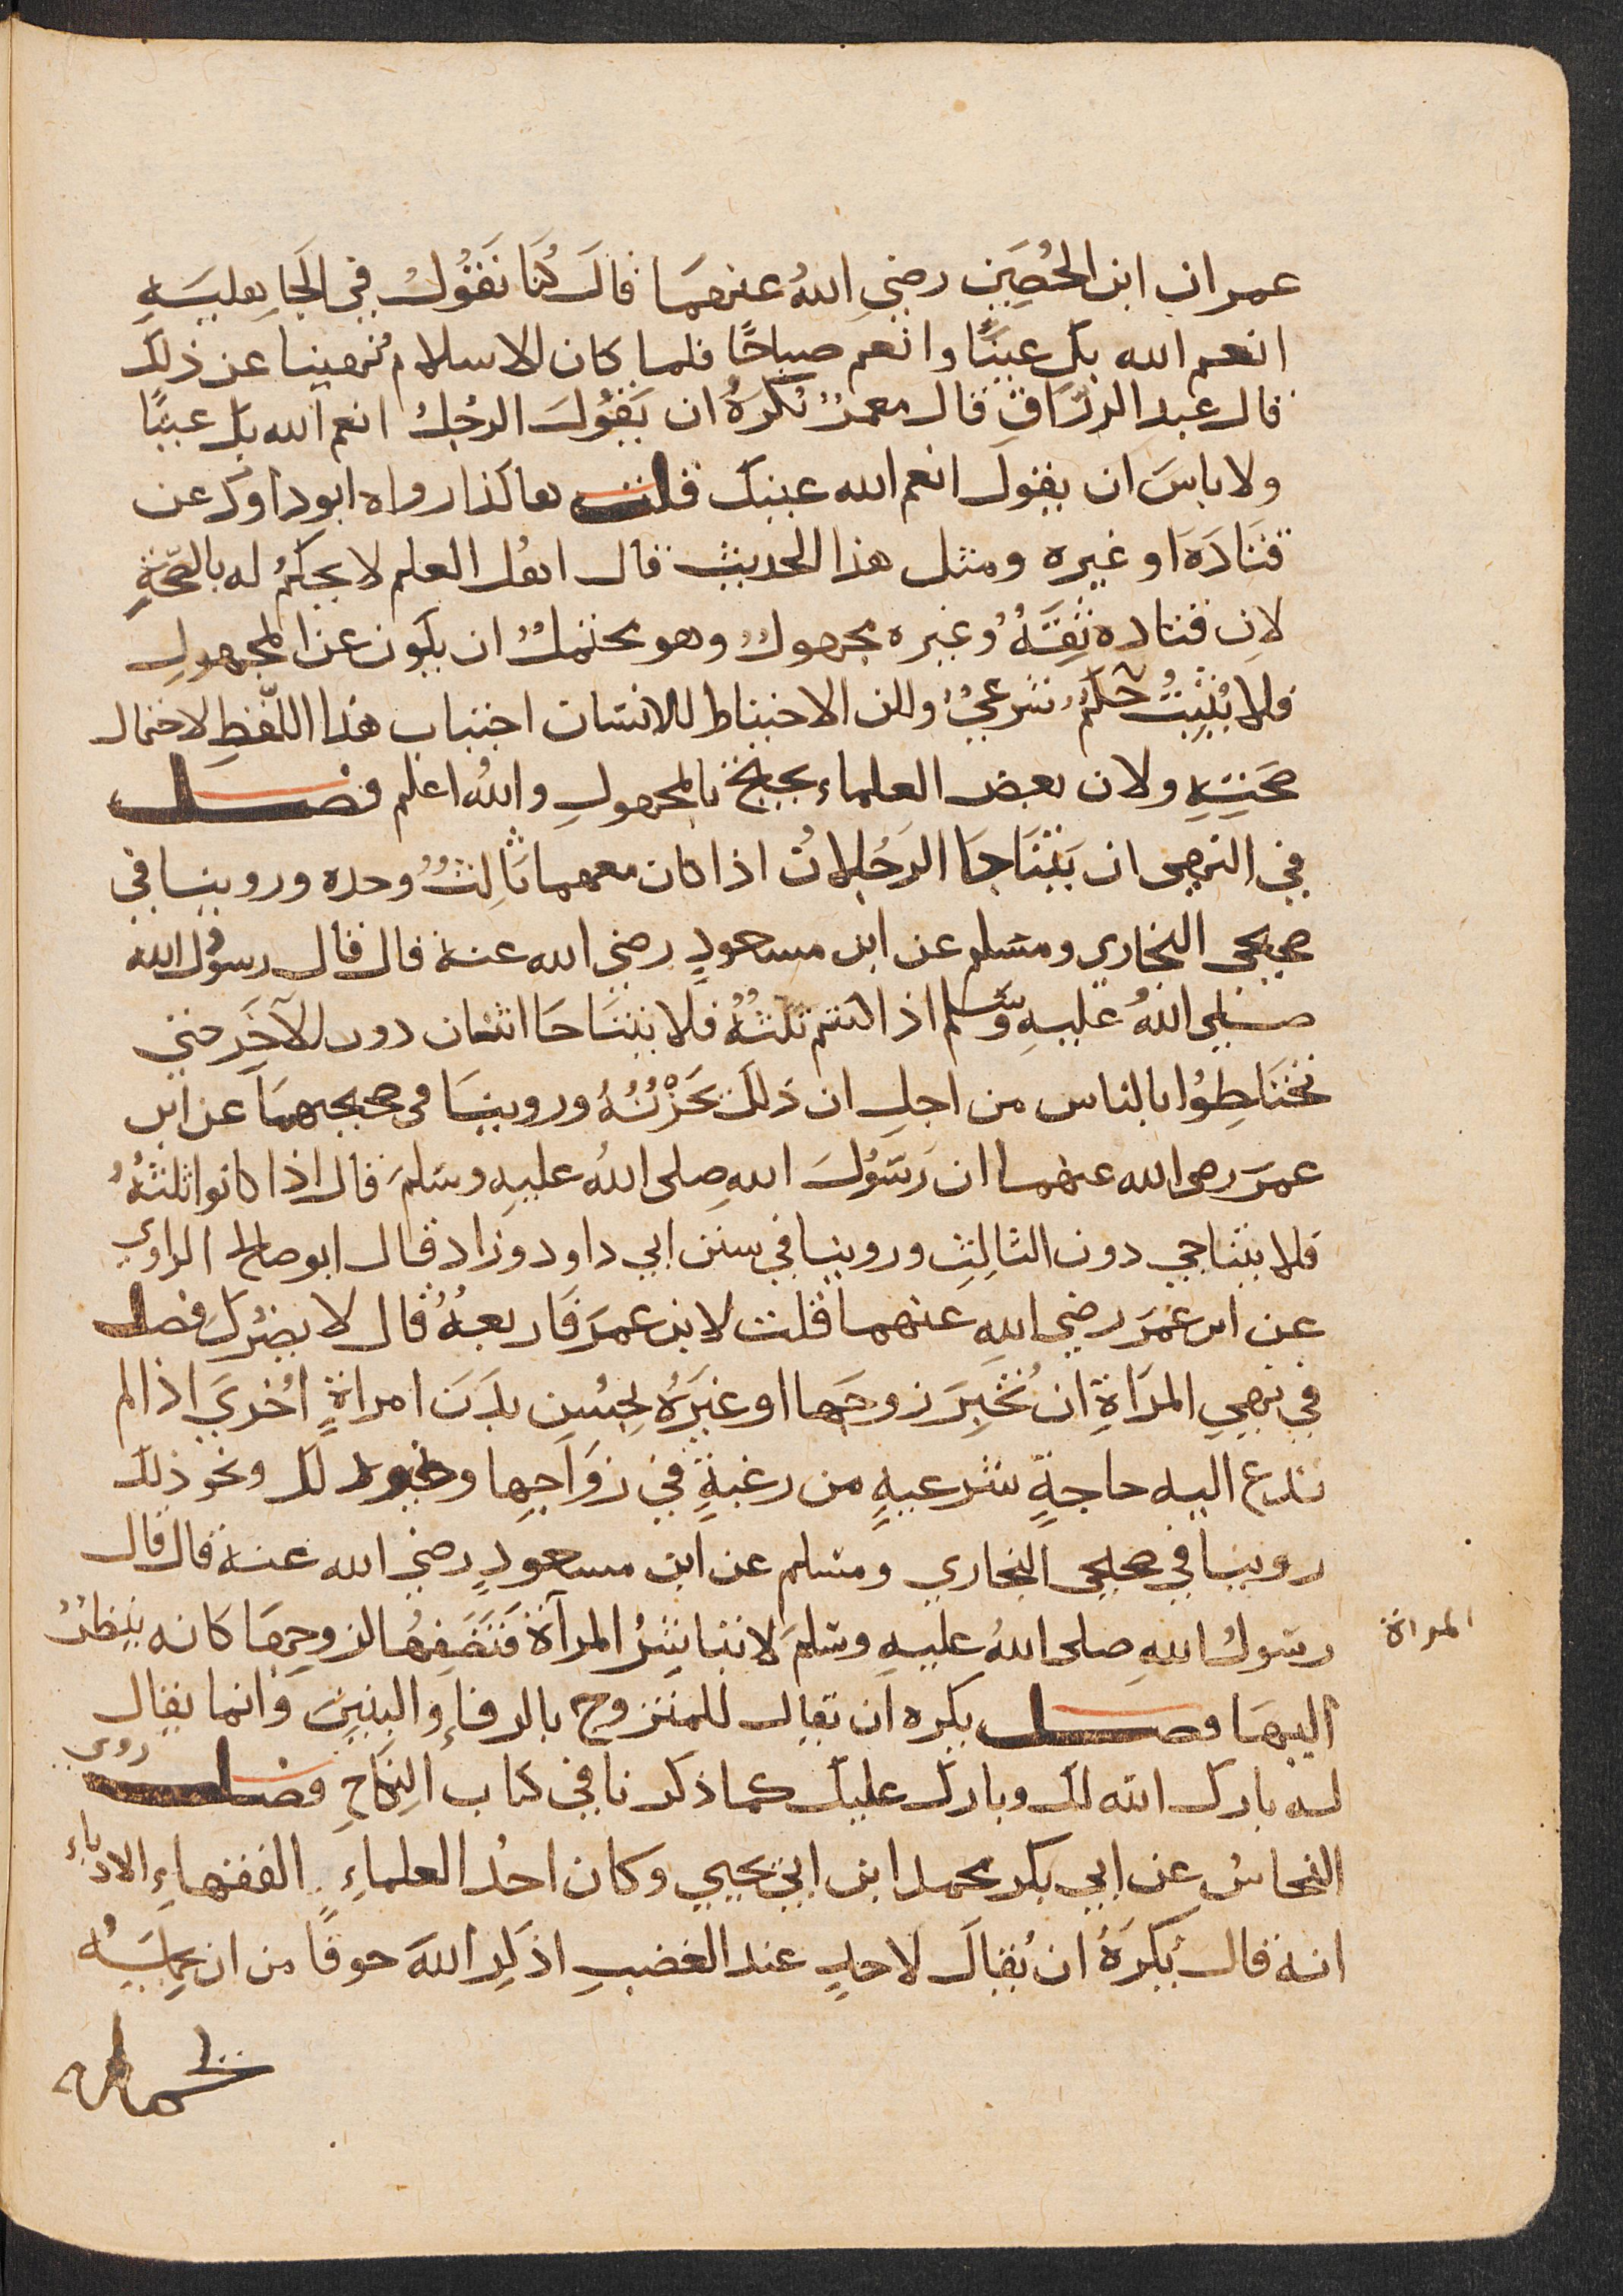 عمران ابن الحُصَين رضي اللهُ عنهمَا قالَ كُنَا نَقُولُ في الجَاهليَهِ
انعم الله بك عينًا وانعم صباحًا فلما كان الاسلامُ نُهينا عن ذلك
قال عبد الرزاقِ قال معمرٌ نُكرَهُ ان يَقُولَ الرجُلُ انعم الله بك عينًا
ولا باسَ ان يقول انعم الله عينك قلت هاكذا رواه ابو داود عن
قتَادَهَ او غيره ومثل هذا الحديث قال اهلُ العلم لا يحكمُ له بالصّحّةِ
لانِ قتاده ثِقَهٌ وغيره مجهولٌ وهو محتملٌ ان يكون عن المجهولِ
فلا يُثبِتُ حُكمٌ شرعيٌ ولكن الاحتياط للانسَان اجتناب هذا اللّفظِ لاحتمال
صحَتِهِ ولان بعض العلماء يحتجُّ بالمجهولِ واللهُ اعلم فصل
في النهي ان يَتَنَاجَا الرَجُلانُ اذا كان معهما ثَالِثٌ وحده وروينا في
صحيحي البخاري ومسلم عن ابن مسعودٍ رضي الله عنه قال قال رسول الله
صلي اللهُ عليهِ وسَّلم اذا كنتم ثلثُهٌ فلا يتنَاحَا اثنان دون الآخَر حتي
تختَاطِوُا بالناس من اجلِ ان ذلك يَحَزْنُنُهُ وروينَا في صحيحيهمَا عن ابن
عمَرَ رضي الله عنهما ان رَسَوُلَ اللهِ صلى اللهُ عليهِ وسَلمَ قال اذا كانوا ثلثةٌ
فلا يتناجي دون الثالِثِ وروينا في سنن ابي داود وزاد قال ابو صالح الراوي
عن ابن عُمَرَ رضي اللهِ عنهما قلت لابن عمَرَ فَاربعهٌ قال لا يضرُك فصل
في نهيِ المرَاةِ ان تُخبِرَ زوجَها او غيَرَهُ بحِسُن بدَنَ امراةٍ اُخريَ اذا لم
تدع اليه حاجةٍ شرعيهٍ من رغبةٍ في زوَاجِها ونحو ذلك
روينا في صحيحي البخاري ومسلم عن ابن مسعودٍ رضي الله عنه قال قال
رسَولُ اللهِ صلى اللهُ عليهِ وسَلمَ لا تباشِرُ المرآة فَتَصِفهُا لزوجِهَا كانه ينظرُ
المراة
اليهَا فصل يكره ان يقال للمتزوج بالرفاءِ والبنين وانما يقال
له بارك الله لك وبارك عليك كما ذكرنا في كتاب النِكَاحِ فصل روي
النحاسُ عن ابي بكر محمد ابن ابي يحيي وكان احدُ العلماءِ الفقهاءِ الادباءِ
انه قال يُكرَهُ ان يُقالَ لاحدٍ عند الغضبِ اذكرِ اللهَ خوفًا من ان يحمِلَهُ